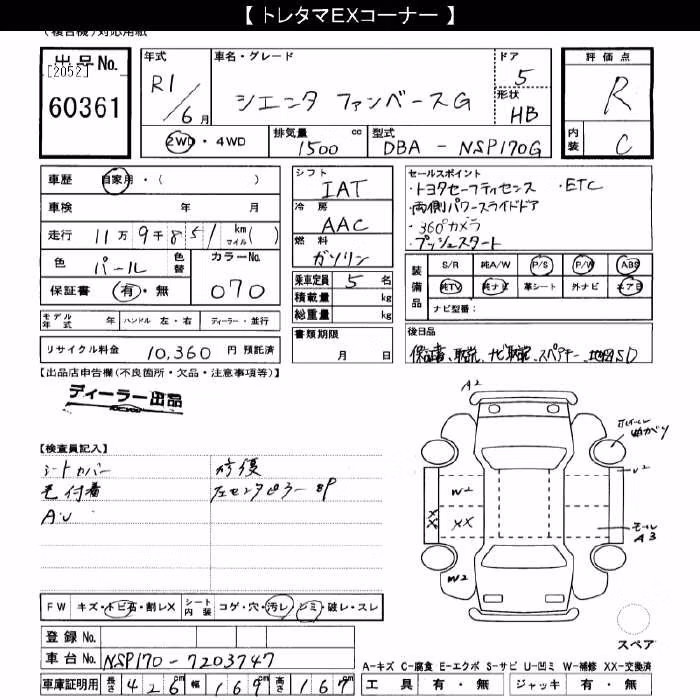 【 トレタマEXコーナー 】
(複合機)対応用紙
出品No.
[2052]
60361
年式
R1/6月
車名・グレード
シエンタ ファンベースG
ドア
5
形状
HB
評価点
R
内装
C
2WD・4WD
排気量
1500
cc
型式
DBA - NSP170G
車歴 自家用・( )
車検 年 月
走行 11万9千851 km マイル( )
色 パール
色替
カラーNo.
070
保証書 有・無
シフト
IAT
冷房
AAC
燃料
ガソリン
乗車定員 5名
積載量 kg
総重量 kg
セールスポイント
・トヨタセーフティセンス ・ETC
・両側パワースライドドア
・360°カメラ
・プッシュスタート
装備品
S/R 純A/W P/S P/W ABS
純TV 純ナビ 革シート 外ナビ エアB
ナビ型番:
モデル年式 年 ハンドル 左・右 ディーラー・並行
リサイクル料金 10,360 円 預託済
書類期限
月 日
後日品
保証書、取説、ナビ取説、スペアキー、地図SD
【出品店申告欄(不良箇所・欠品・注意事項等)】
ディーラー出品
【検査員記入】
シートカバー 修復
毛付着 左センタピラーSP
A・U
A2
ホイール曲がり
U2
W2
XX
XX
モール
A3
W2
FW キズ・トビ石・割レX
シート内装 コゲ・穴・汚レ・シミ・破レ・スレ
登録No.
車台No. NSP170-7203747
車庫証明用 長さ 426cm 幅 169cm 高さ 167cm
スペア
A-キズ C-腐食 E-エクボ S-サビ U-凹ミ W-補修 XX-交換済
工具 有・無 ジャッキ 有・無